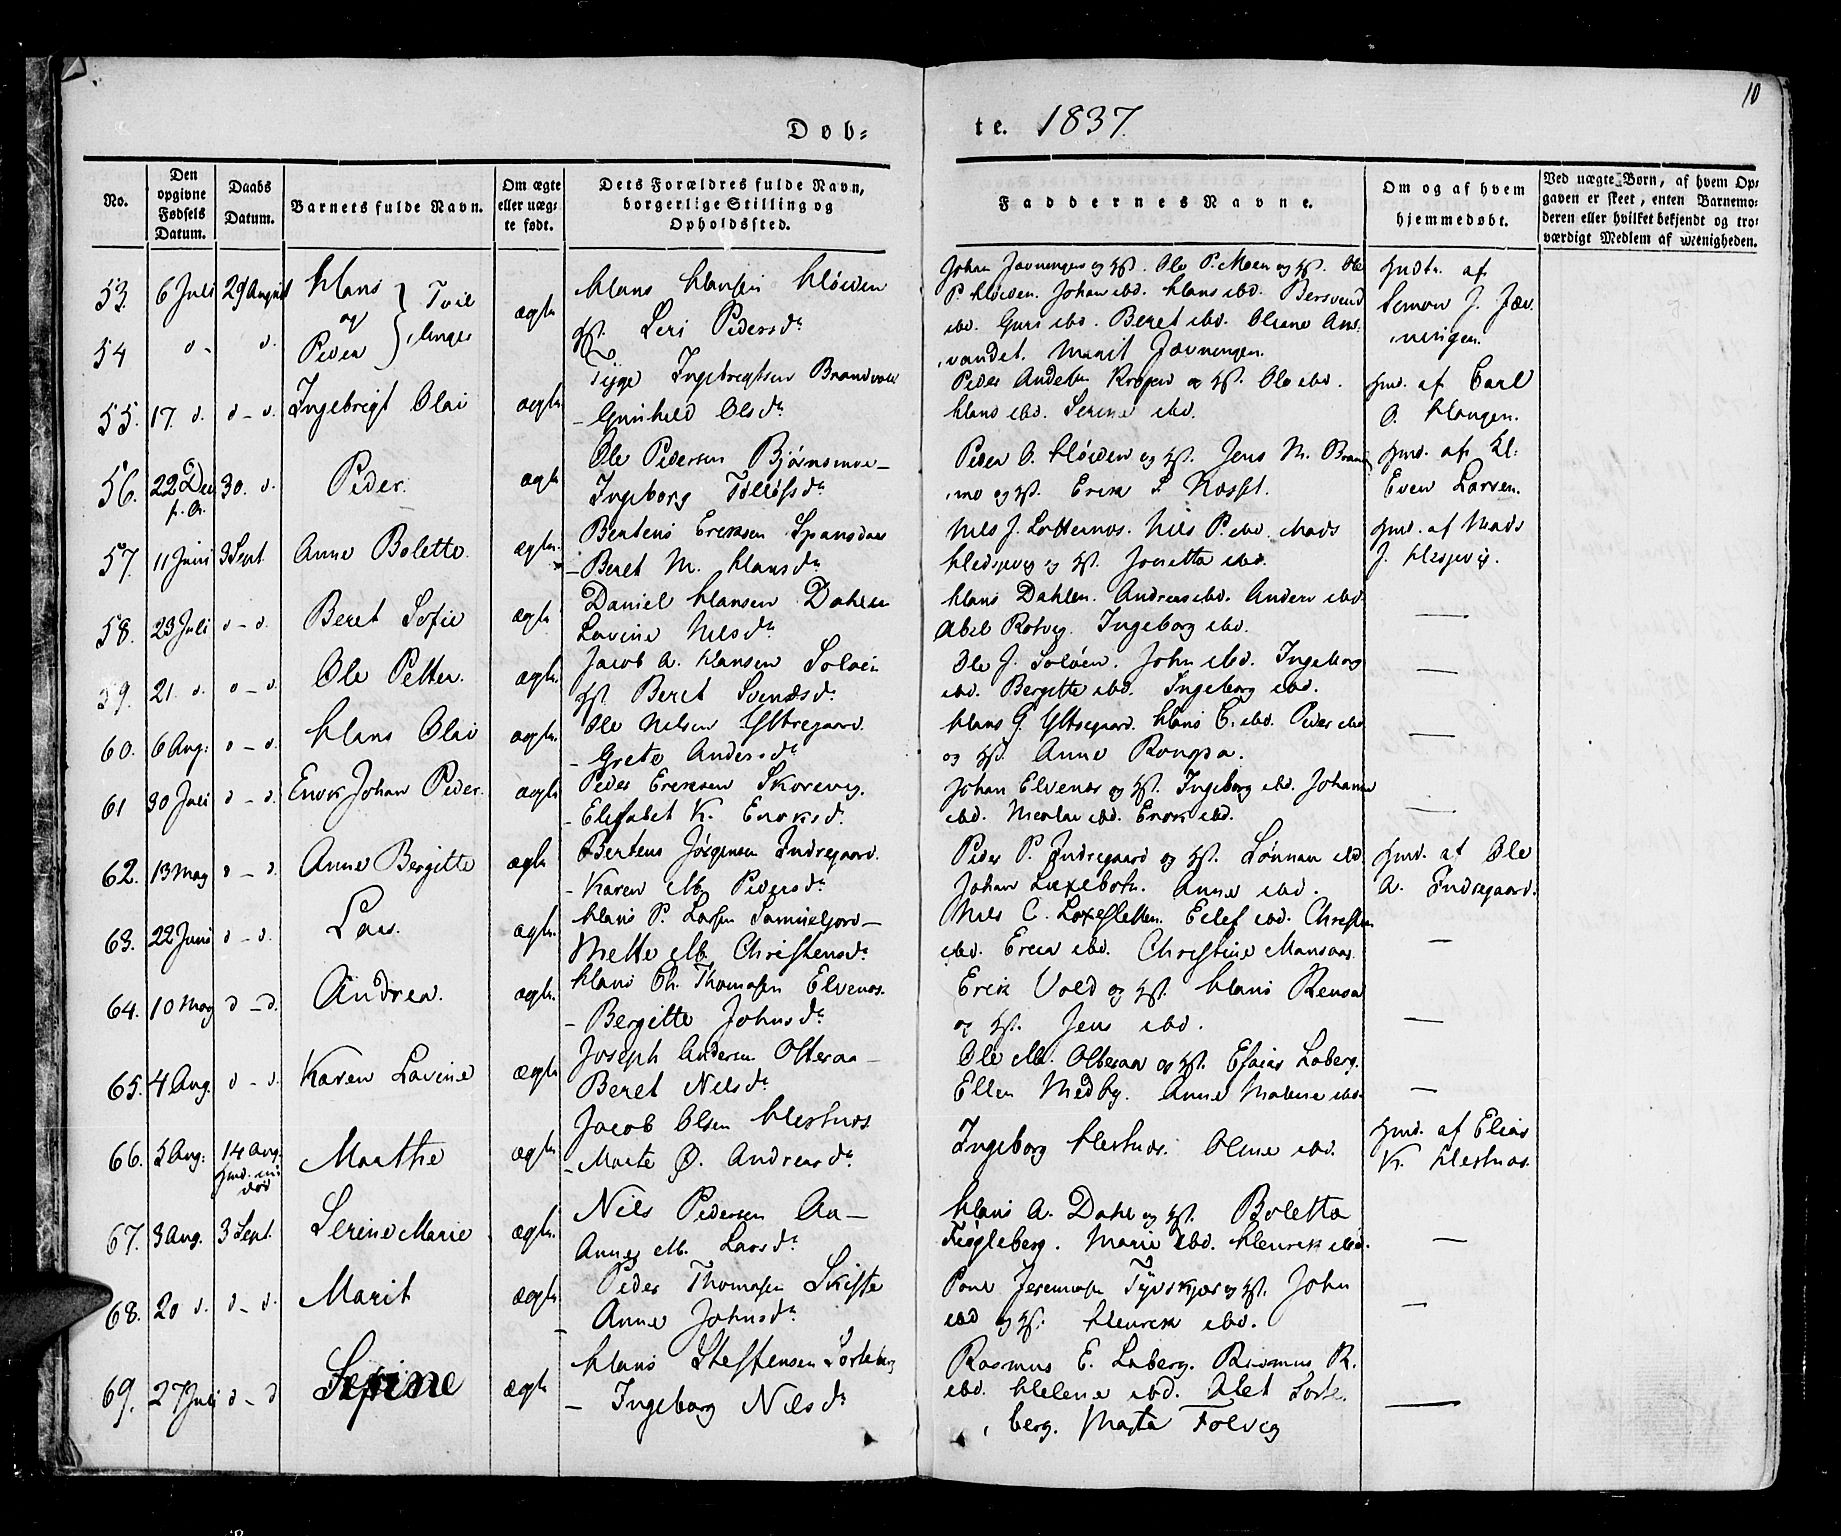 10
Døb-
te. 1837.
No.
Den opgivne Fødsels Datum.
Daabs Datum.
Barnets fulde Navn.
Om ægte eller uægte født.
Dets Forældres fulde Navn, borgerlige Stilling og Opholdssted.
Faddernes Navne.
Om og af hvem hjemmedøbt.
Ved uægte Børn, af hvem Opgaven er skeet, enten Barnemoderen eller hvilket bekjendt og troværdigt Medlem af Menigheden.
53. 6 Juli 29 August Hans
og } Tvillinger ægte Hans Hansen Høiden
54 d - d. Peder Hst. Seri Pedersdr
Ole P. Moen og Hst. Ole
P. Høiden. Johan ibd. Hans ibd. Bersvend
ibd. Guri ibd. Beret ibd. Olene
Marit Jævningen.
af
Simon J. Jæv-
ningen.
55. 17. d. d - d. Ingebrigt Olai ægte Tyge Ingebrigtsen Brandvold
- Gunhild Olsdr
Peder Andersen og Hst. Ole ibd.
Hans ibd. Serine ibd.
Hmd. af Carl
O. Haugen.
56. 22 Dec f. A. 30. d. Peder. ægte Ole Pedersen Bjørnmoe -
Ingeborg Tollefsdr
Peder O. Høiden og Hst. Jens M. Brand-
mo og Hst. Erik L. Kosset.
Hmd. af Kl:
Even Larsen.
57. 11 Juni 3 Sept. Anne Bolette. ægte. Bertens Eriksen Spansdal
- Beret M. Hansdr
Nils J. Nils P. ibd. Mads
og Hst. Jonetta ibd.
Hmd. af Mads
J. Hesjevig.
58. 23 Juli d - d. Beret Sofie ægte Daniel Hansen Dahlen
Lavine Nilsdr
Hans Dahlen. Andreas ibd. Anders ibd.
Abel Rotvig. Ingeborg ibd.
—
59. 21. d. d - d. Ole Petter. ægte. Jacob A. Hansen Soløen
Hst. Beret Svendsdr
Ole J. Soløen. John ibd. Ingeborg
ibd. Bergitte ibd. Ingeborg ibd.
—
60. 6 Aug: d - d. Hans Olai ægte. Ole Nilsen Yttregaard
- Grete Andersdr
Hans G. Yttregaard. Hans E. ibd. Peder ibd.
og Hst. Anne
—
61 30 Juli d - d. Enok Johan Peder. ægte Peder Eriksen Skorevig.
- Elisabet K. Enoksdr.
Johan Elvenes og Hst. Ingeborg ibd. Johanna
ibd. Nicolai ibd. Enok ibd.
—
62. 13 May d - d. Anne Bergitte ægte Bertens Jørgensen Indregaard.
- Karen M. Pedersdr
Peder P. Indregaard og Hst. Lønnan ibd.
Johan Laxebotn. Anne ibd.
Hmd. af Ole
A. Indregaard.
63. 22 Juni d - d. Lars. ægte. Hans P. Larsen -
Mette M. Christensdr
Nils C. Laxesletten. Eilef ibd. Christen
ibd. Erica ibd. Christine Mansaas.
—
64. 10 May d - d. Andrea. ægte. Hans Ch. Thomasen Elvenes.
- Bergitte Johnsdr
Erik Vold og Hst. Hans Rensa
og Hst. Jens ibd.
—
65. 4 Aug. d - d. Karen Lavine ægte Joseph Andersen Olteraa -
Beret Nilsdr
Ole M. Olteraa og Hst. Esaias Laberg.
Ellen Medby. Anne Malene ibd.
—
66. 3 Aug: 14 Aug. Marthe ægte Jacob Olsen Hestnæs
- Marte Ø. Andreasdr
Ingeborg Hestnæs. Oline ibd.
Hmd. af Elias
K. Hestnæs.
67. 3 Aug. 3 Sept. Serine Marie ægte. Nils Pedersen Aa -
Anne M. Larsdr
Hans A. Dahl og Hst. Boletta
Fugleberg. Marie ibd. Henrik ibd.
—
68. 20 d. d - d. Marit ægte Peder Thomasen Skifte
- Anne Johnsdr
Povel Jeremiasen og Hst. John
ibd og Hst. Henrik ibd.
—
69. 27 Juli d - d ægte Hans Steffensen Sorteberg
- Ingeborg Nilsdr
Rasmus E. Laberg. Rasmus R.
ibd. Helene ibd. Alet Sorte-
berg. Marta Folvig
—